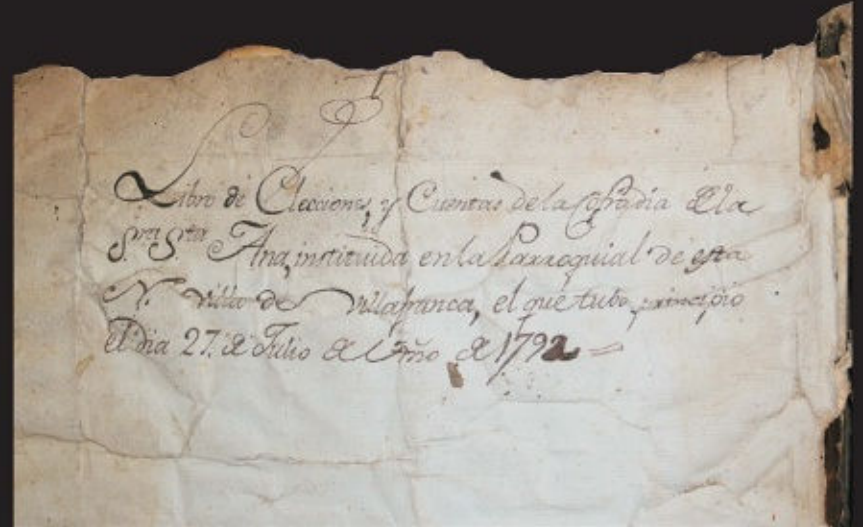 Libro de Elecciones, y Cuentas de la Cofradia de la
S.ra S.ta Ana, instituida en la Parroquial de esta
N. villa de Villafranca, el que tubo principio
el dia 27. de Julio de Año de 1792